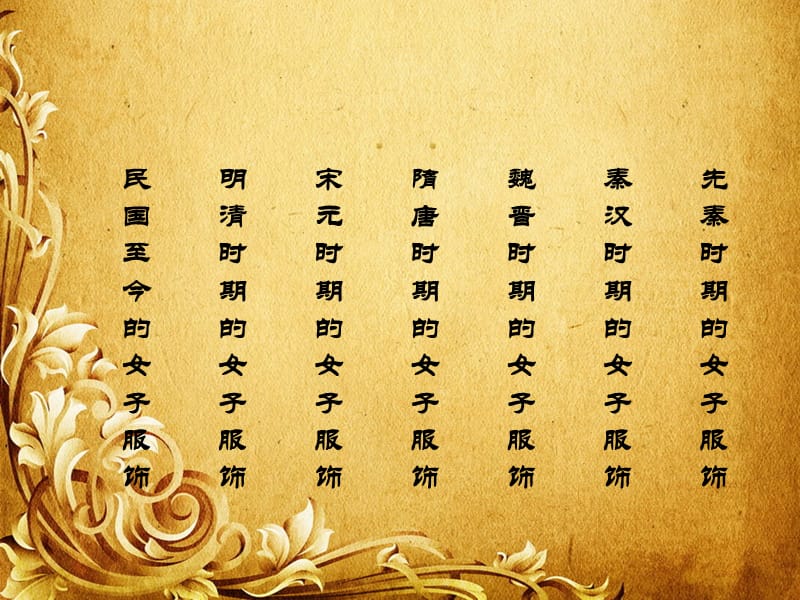 先秦时期的女子服饰
秦汉时期的女子服饰
魏晋时期的女子服饰
隋唐时期的女子服饰
宋元时期的女子服饰
明清时期的女子服饰
民国至今的女子服饰